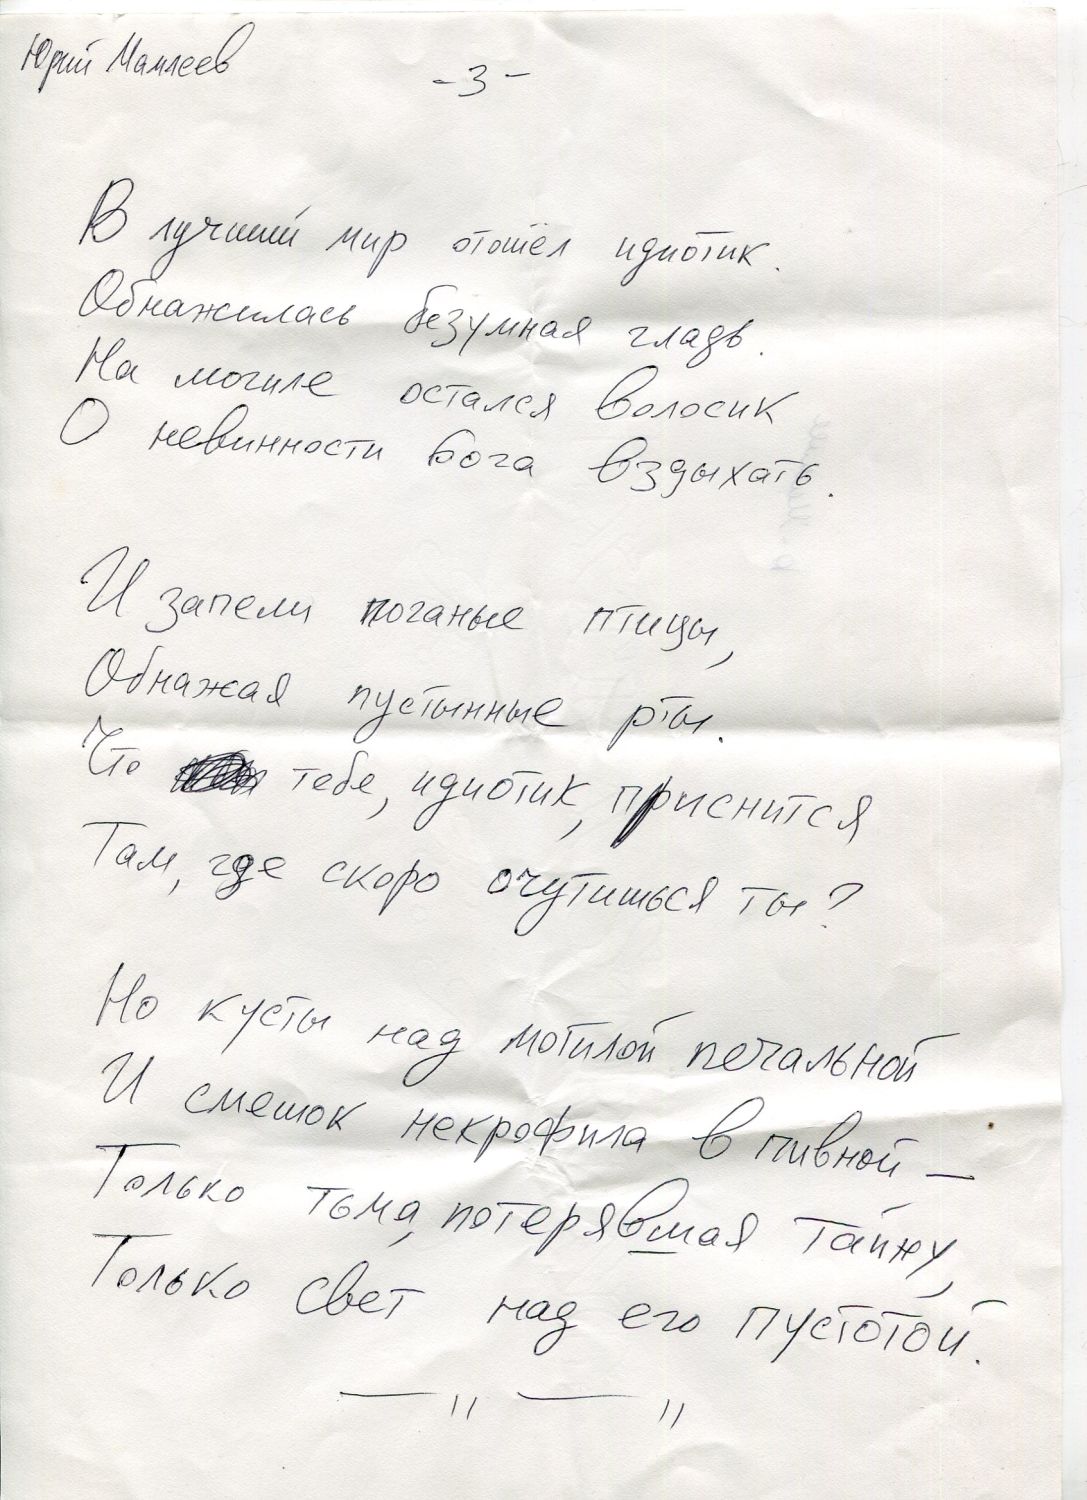 Юрий Мамлеев
- 3 -
В лучший мир отошёл идиотик.
Обнажилась безумная гладь.
На могиле остался волосик
О невинности Бога вздыхать.
И запели поганые птицы,
Обнажая пустынные рты.
Что тебе, идиотик, приснится
Там, где скоро очутишься ты?
Но кусты над могилой печальной
И смешок некрофила в пивной —
Только тьма, потерявшая тайну,
Только свет над его пустотой.
— " — "